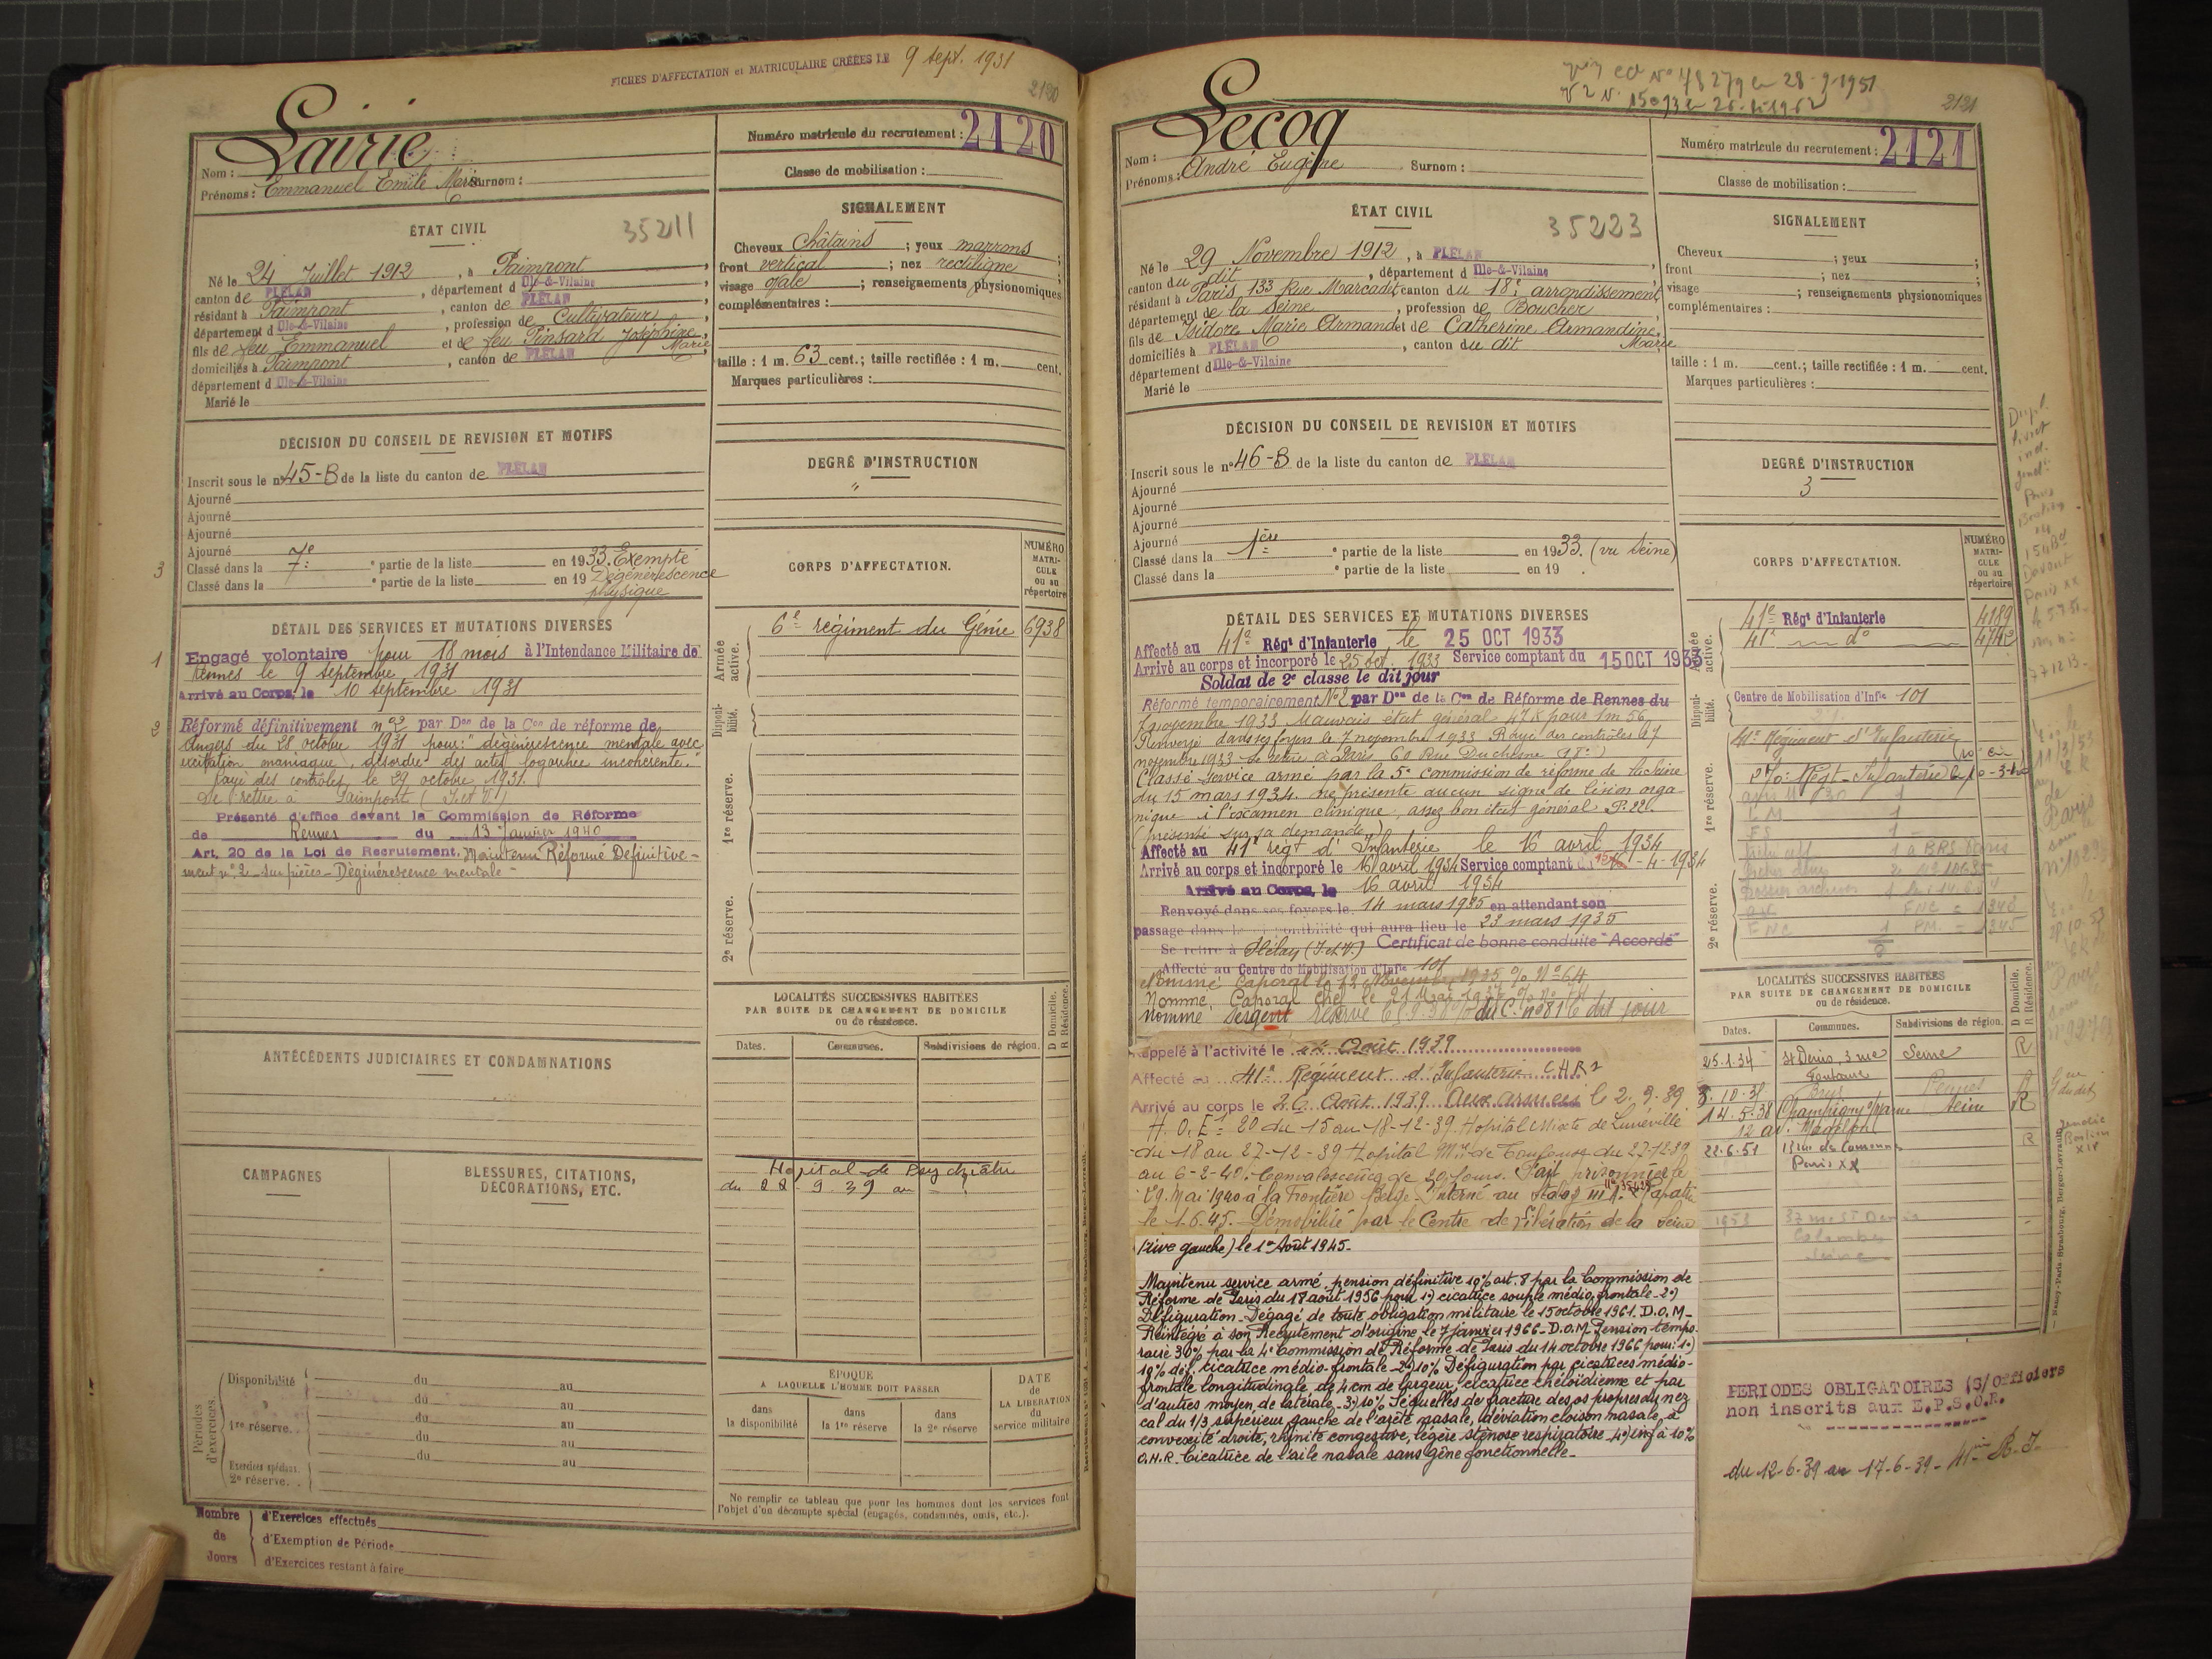 FICHES D'AFFECTATION et MATRICULAIRE CRÉÉES LE 9 sept. 1931
2120
Lairie
Nom :
Prénoms : Emmanuel Emile Marie Surnom :
Numéro matricule du recrutement : 2120
Classe de mobilisation :
ÉTAT CIVIL
35211
Né le 24 Juillet 1912, à Paimpont,
canton de PLÉLAN, département d Ille-&-Vilaine
résidant à Paimpont, canton de PLÉLAN
département d Ille-&-Vilaine, profession de Cultivateur,
fils de feu Emmanuel et de feu Pinsard Joséphine Marie
domiciliés à Paimpont, canton de PLÉLAN,
département d Ille-&-Vilaine
Marié le
SIGNALEMENT
Cheveux châtains ; yeux marrons ;
front vertical ; nez rectiligne ;
visage ovale ; renseignements physionomiques
complémentaires :
taille : 1 m. 63 cent.; taille rectifiée : 1 m. cent.
Marques particulières :
DÉCISION DU CONSEIL DE REVISION ET MOTIFS
Inscrit sous le n° 45-B de la liste du canton de PLÉLAN
Ajourné
Ajourné
Ajourné
Ajourné
3 Classé dans la 7e partie de la liste en 1933. Exempté
Classé dans la e partie de la liste en 19 Dégénérescence
physique
DEGRÉ D'INSTRUCTION
"
CORPS D'AFFECTATION.
NUMÉRO MATRICULE ou au répertoire
Armée active.
6e régiment du Génie 6938
Disponibilité.
1re réserve.
2e réserve.
DÉTAIL DES SERVICES ET MUTATIONS DIVERSES
1 Engagé volontaire pour 18 mois à l'Intendance Militaire de
Rennes le 9 septembre 1931
Arrivé au Corps, le 10 septembre 1931
2 Réformé définitivement n°2 par Don de la Con de réforme de
Angers du 28 octobre 1931 pour : "dégénérescence mentale avec
excitation maniaque, désordre des actes logorrhée incohérente."
Rayé des contrôles le 29 octobre 1931.
Se retire à Paimpont (I. et V.)
Présenté d'office devant la Commission de Réforme
de Rennes du 13 Janvier 1940
Art. 20 de la Loi de Recrutement. Maintenu Réformé Définitive-
ment n° 2 - sur pièces - Dégénérescence mentale -
ANTÉCÉDENTS JUDICIAIRES ET CONDAMNATIONS
CAMPAGNES
BLESSURES, CITATIONS, DÉCORATIONS, ETC.
LOCALITÉS SUCCESSIVES HABITÉES
PAR SUITE DE CHANGEMENT DE DOMICILE
ou de résidence.
D Domicile.
R Résidence.
Dates. Communes. Subdivisions de région.
Hopital de Psychiâtrie
du 22 9. 39 au ?
Périodes d'exercices
Disponibilité du au
du au
1re réserve. du au
du au
Exercices spéciaux.
2e réserve. du au
ÉPOQUE
A LAQUELLE L'HOMME DOIT PASSER
dans la disponibilité
dans la 1re réserve
dans la 2e réserve
DATE de LA LIBERATION du service militaire
Ne remplir ce tableau que pour les hommes dont les services font
l'objet d'un décompte spécial (engagés, condamnés, omis, etc.).
Nombre de Jours
d'Exercices effectués
d'Exemption de Période
d'Exercices restant à faire
2121
Lecoq
Nom :
Prénoms : André Eugène Surnom :
Numéro matricule du recrutement : 2121
Classe de mobilisation :
ÉTAT CIVIL
35223
Né le 29 Novembre 1912, à PLÉLAN,
canton du dit, département d Ille-&-Vilaine
résidant à Paris 133 Rue Marcadet canton du 18e arrondissement
département de la Seine, profession de Boucher
fils de Isidore Marie Armand et de Catherine Armandine Marie
domiciliés à PLÉLAN, canton du dit
département d Ille-&-Vilaine
Marié le
SIGNALEMENT
Cheveux ; yeux ;
front ; nez ;
visage ; renseignements physionomiques
complémentaires :
taille : 1 m. cent.; taille rectifiée : 1 m. cent.
Marques particulières :
DÉCISION DU CONSEIL DE REVISION ET MOTIFS
Inscrit sous le n° 46-B de la liste du canton de PLÉLAN
Ajourné
Ajourné
Ajourné
Ajourné
Classé dans la 1ère partie de la liste en 1933. (vu Seine)
Classé dans la e partie de la liste en 19 .
DEGRÉ D'INSTRUCTION
3
CORPS D'AFFECTATION.
NUMÉRO MATRICULE ou au répertoire
Armée active.
41e Régt d'Infanterie 4189
41e do
Disponibilité.
Centre de Mobilisation d'Infie 101
41e Régiment d'Infanterie
1re réserve.
2e réserve.
DÉTAIL DES SERVICES ET MUTATIONS DIVERSES
Affecté au 41e Régt d'Infanterie le 25 OCT 1933
Arrivé au corps et incorporé le 25 oct. 1933 Service comptant du 15 OCT 1933
Soldat de 2e classe le dit jour
Réformé temporairement N°2 par Don de la Con de Réforme de Rennes du
7 novembre 1933 Mauvais état général 47 K pour 1m 56,
Renvoyé dans ses foyers le 7 novembre 1933 Rayé des contrôles le 7
novembre 1933 se retire à Paris 60 Rue Duchesne (18e)
Classé service armé par la 5e commission de réforme de la Seine
du 15 mars 1934. ne présente aucun signe de lésion orga-
nique à l'examen clinique, assez bon état général P. 22.
(présenté sur sa demande)
Affecté au 41e régt d'Infanterie le 16 avril 1934
Arrivé au corps et incorporé le 16 avril 1934 Service comptant du 15-4-1934
Arrivé au Corps, le 16 avril 1934
Renvoyé dans ses foyers le 14 mars 1935 en attendant son
passage dans la disponibilité qui aura lieu le 23 mars 1935
Se retire à Plélan (I. et V.) Certificat de bonne conduite "Accordé"
Affecté au Centre de Mobilisation d'Infie 101
Nommé Caporal le 12 Novembre 1935 % N° 64
Nommé Caporal Chef le 21 Mai 1937
Nommé Sergent Réserve du C. n° 81 le dit jour
Rappelé à l'activité le Août 1939
Affecté au 41e Régiment d'Infanterie
Arrivé au corps le 26 Août 1939 Aux armées le 2.9.39
H. O. E. 20 du 15 au 18-12-39. Hôpital Mixte de Lunéville
du 18 au 27-12-39 Hôpital Mre de Toulouse du 27-12-39
au 6-2-40. Convalescence de 20 jours. Fait prisonnier le
29 Mai 1940 à la Frontière Belge. Interné au Stalag III A. Rapatrié
le 1.6.45. Démobilisé par le Centre de Libération de la Seine
(rive gauche) le 1er Août 1945.
Maintenu service armé, pension définitive 10% art. 8 par la Commission de
Réforme de Paris du 17 août 1956 pour 1°) cicatrice souple médio-frontale 2°)
Défiguration. Dégagé de toute obligation militaire le 15 octobre 1961. D.O.M.
Réintégré à son Recrutement d'origine le 7 janvier 1966. D.O.M. Pension tempo-
raire 30% par la 4e Commission de Réforme de Paris du 14 octobre 1966 pour : 1°)
10% déf. cicatrice médio-frontale - 2°) 10% Défiguration par cicatrices médio-
frontale longitudinale de 4 cm de largeur, cicatrice chéloïdienne et par
d'autres moyen de latérale - 3°) 10% Séquelles de fracture des os propres du nez
cal du 1/3 supérieur gauche de l'arête nasale, déviation cloison nasale à
convexité droite, rhinite congestive, légère sténose respiratoire - 4°) inf à 10%
O.H.R. Cicatrice de l'aile nasale sans gêne fonctionnelle -
LOCALITÉS SUCCESSIVES HABITÉES
PAR SUITE DE CHANGEMENT DE DOMICILE
ou de résidence.
D Domicile.
R Résidence.
Dates. Communes. Subdivisions de région.
25.1.34 St Denis, 3 rue Fontaine Seine R
14.5.38 Champigny s/Marne Seine R
22.6.51 Paris XX R
PERIODES OBLIGATOIRES (S/Officiers
non inscrits aux E.P.S.O.R.
du 12-6-39 au 17-6-39 - 41e R.I.